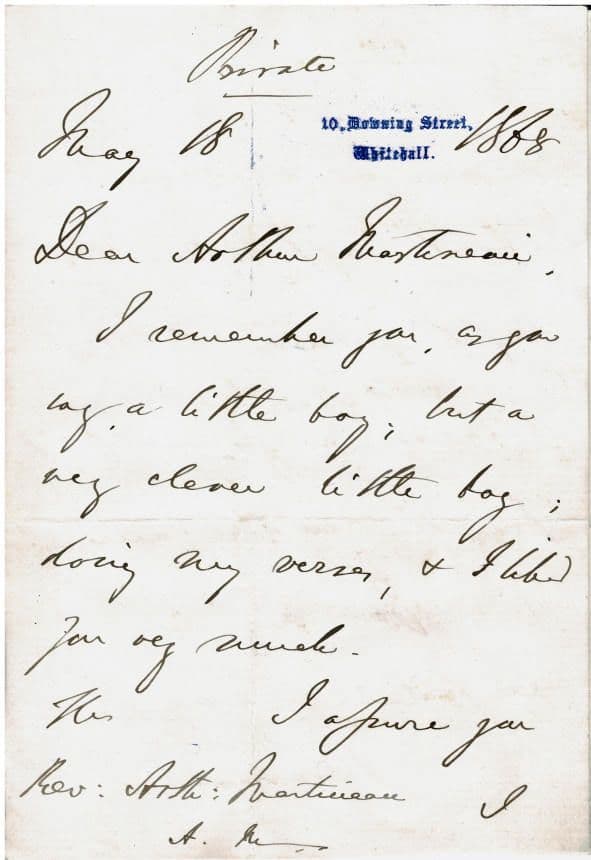 Private
May 18 10, Downing Street, 1868
Whitehall.
Dear Arthur Martineau,
I remember you, as you
say, a little boy; but a
very clever little boy;
doing my verses, & I liked
you very much.
I assure you
Rev: Arth: Martineau I
A. M.